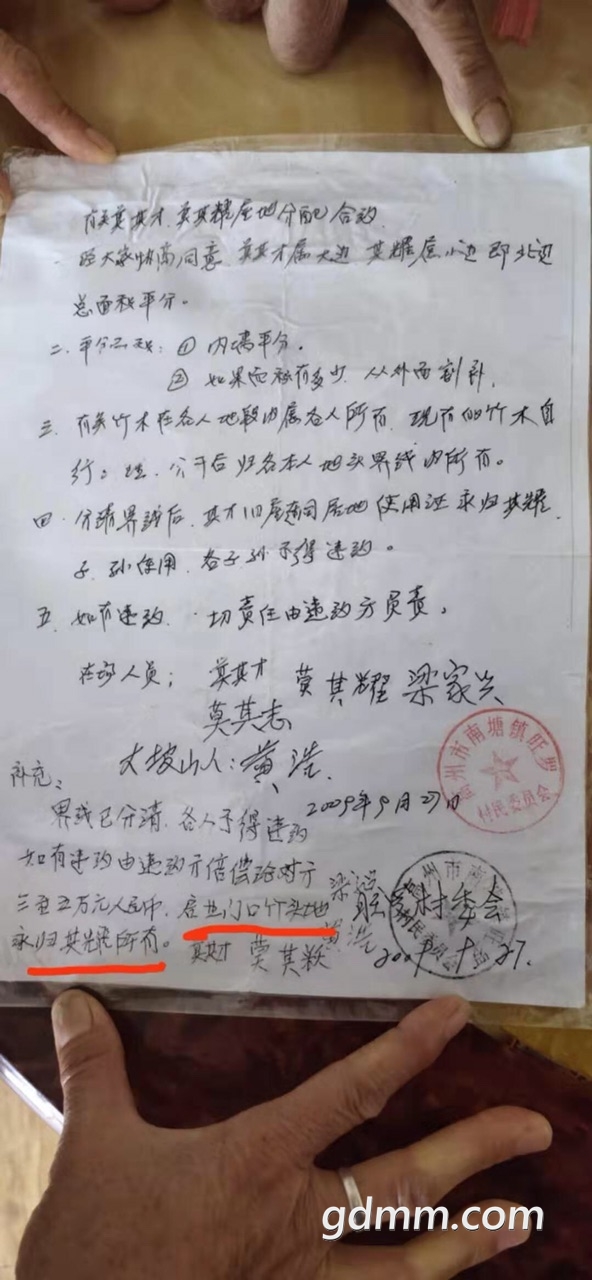 有关莫其才、莫其耀屋地分配合约
经大家协商同意，莫其才属大边 其耀属小边即北边
总面积平分。
二、平分面积：① 内墙平分.
② 如果面积有多少 从外面割补.
三、有关竹木在各人地段内属各人所有，现有的竹木自
行 公开后归各本人地头界线内所有。
四、分清界线后，其才旧屋 屋地使用证永归其耀
子、孙使用，各子孙不得违约。
五、如有违约，一切责任由违约方负责，
在场人员；莫其才 莫其耀 梁家兴
莫其志
大坡山人：黄浩.
高州市南塘镇旺罗
村民委员会
补充：
2009年9月27日
界线已分清，各人不得违约
如有违约由违约方倍偿给对方
三至五万元人民币，屋 门口竹头地
永归其耀所有。
其才 莫其
黄浩
村委会
州市南
村民委员会
2009. 27.
gdmm.com